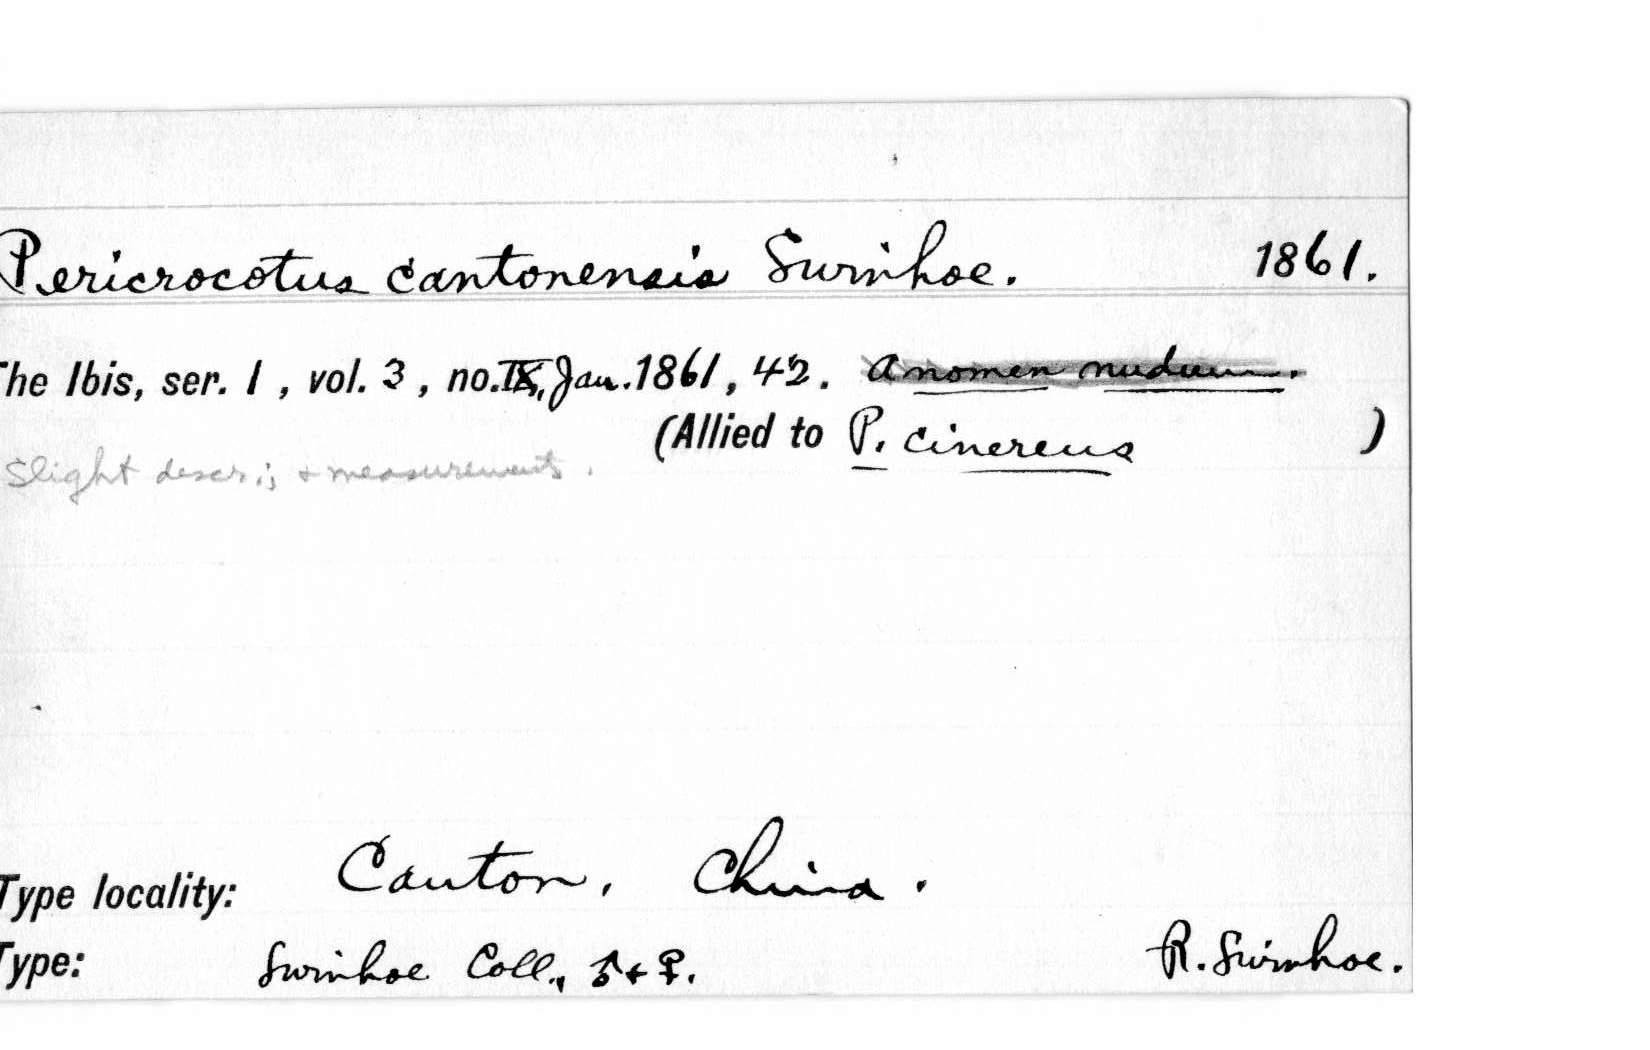 Pericrocotus cantonensis Swinhoe. 1861.
The Ibis, ser. 1, vol. 3, no. IX, Jan. 1861, 42. A nomen nudum.
(Allied to P. cinereus )
Slight descr.; + measurements.
Type locality: Canton, China.
Type: Swinhoe Coll., ♂ + ♀. R. Swinhoe.